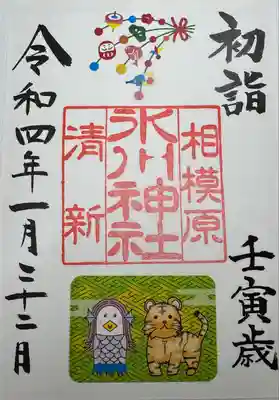 初詣
壬寅歳
相模原
氷川神社
清新
令和四年一月